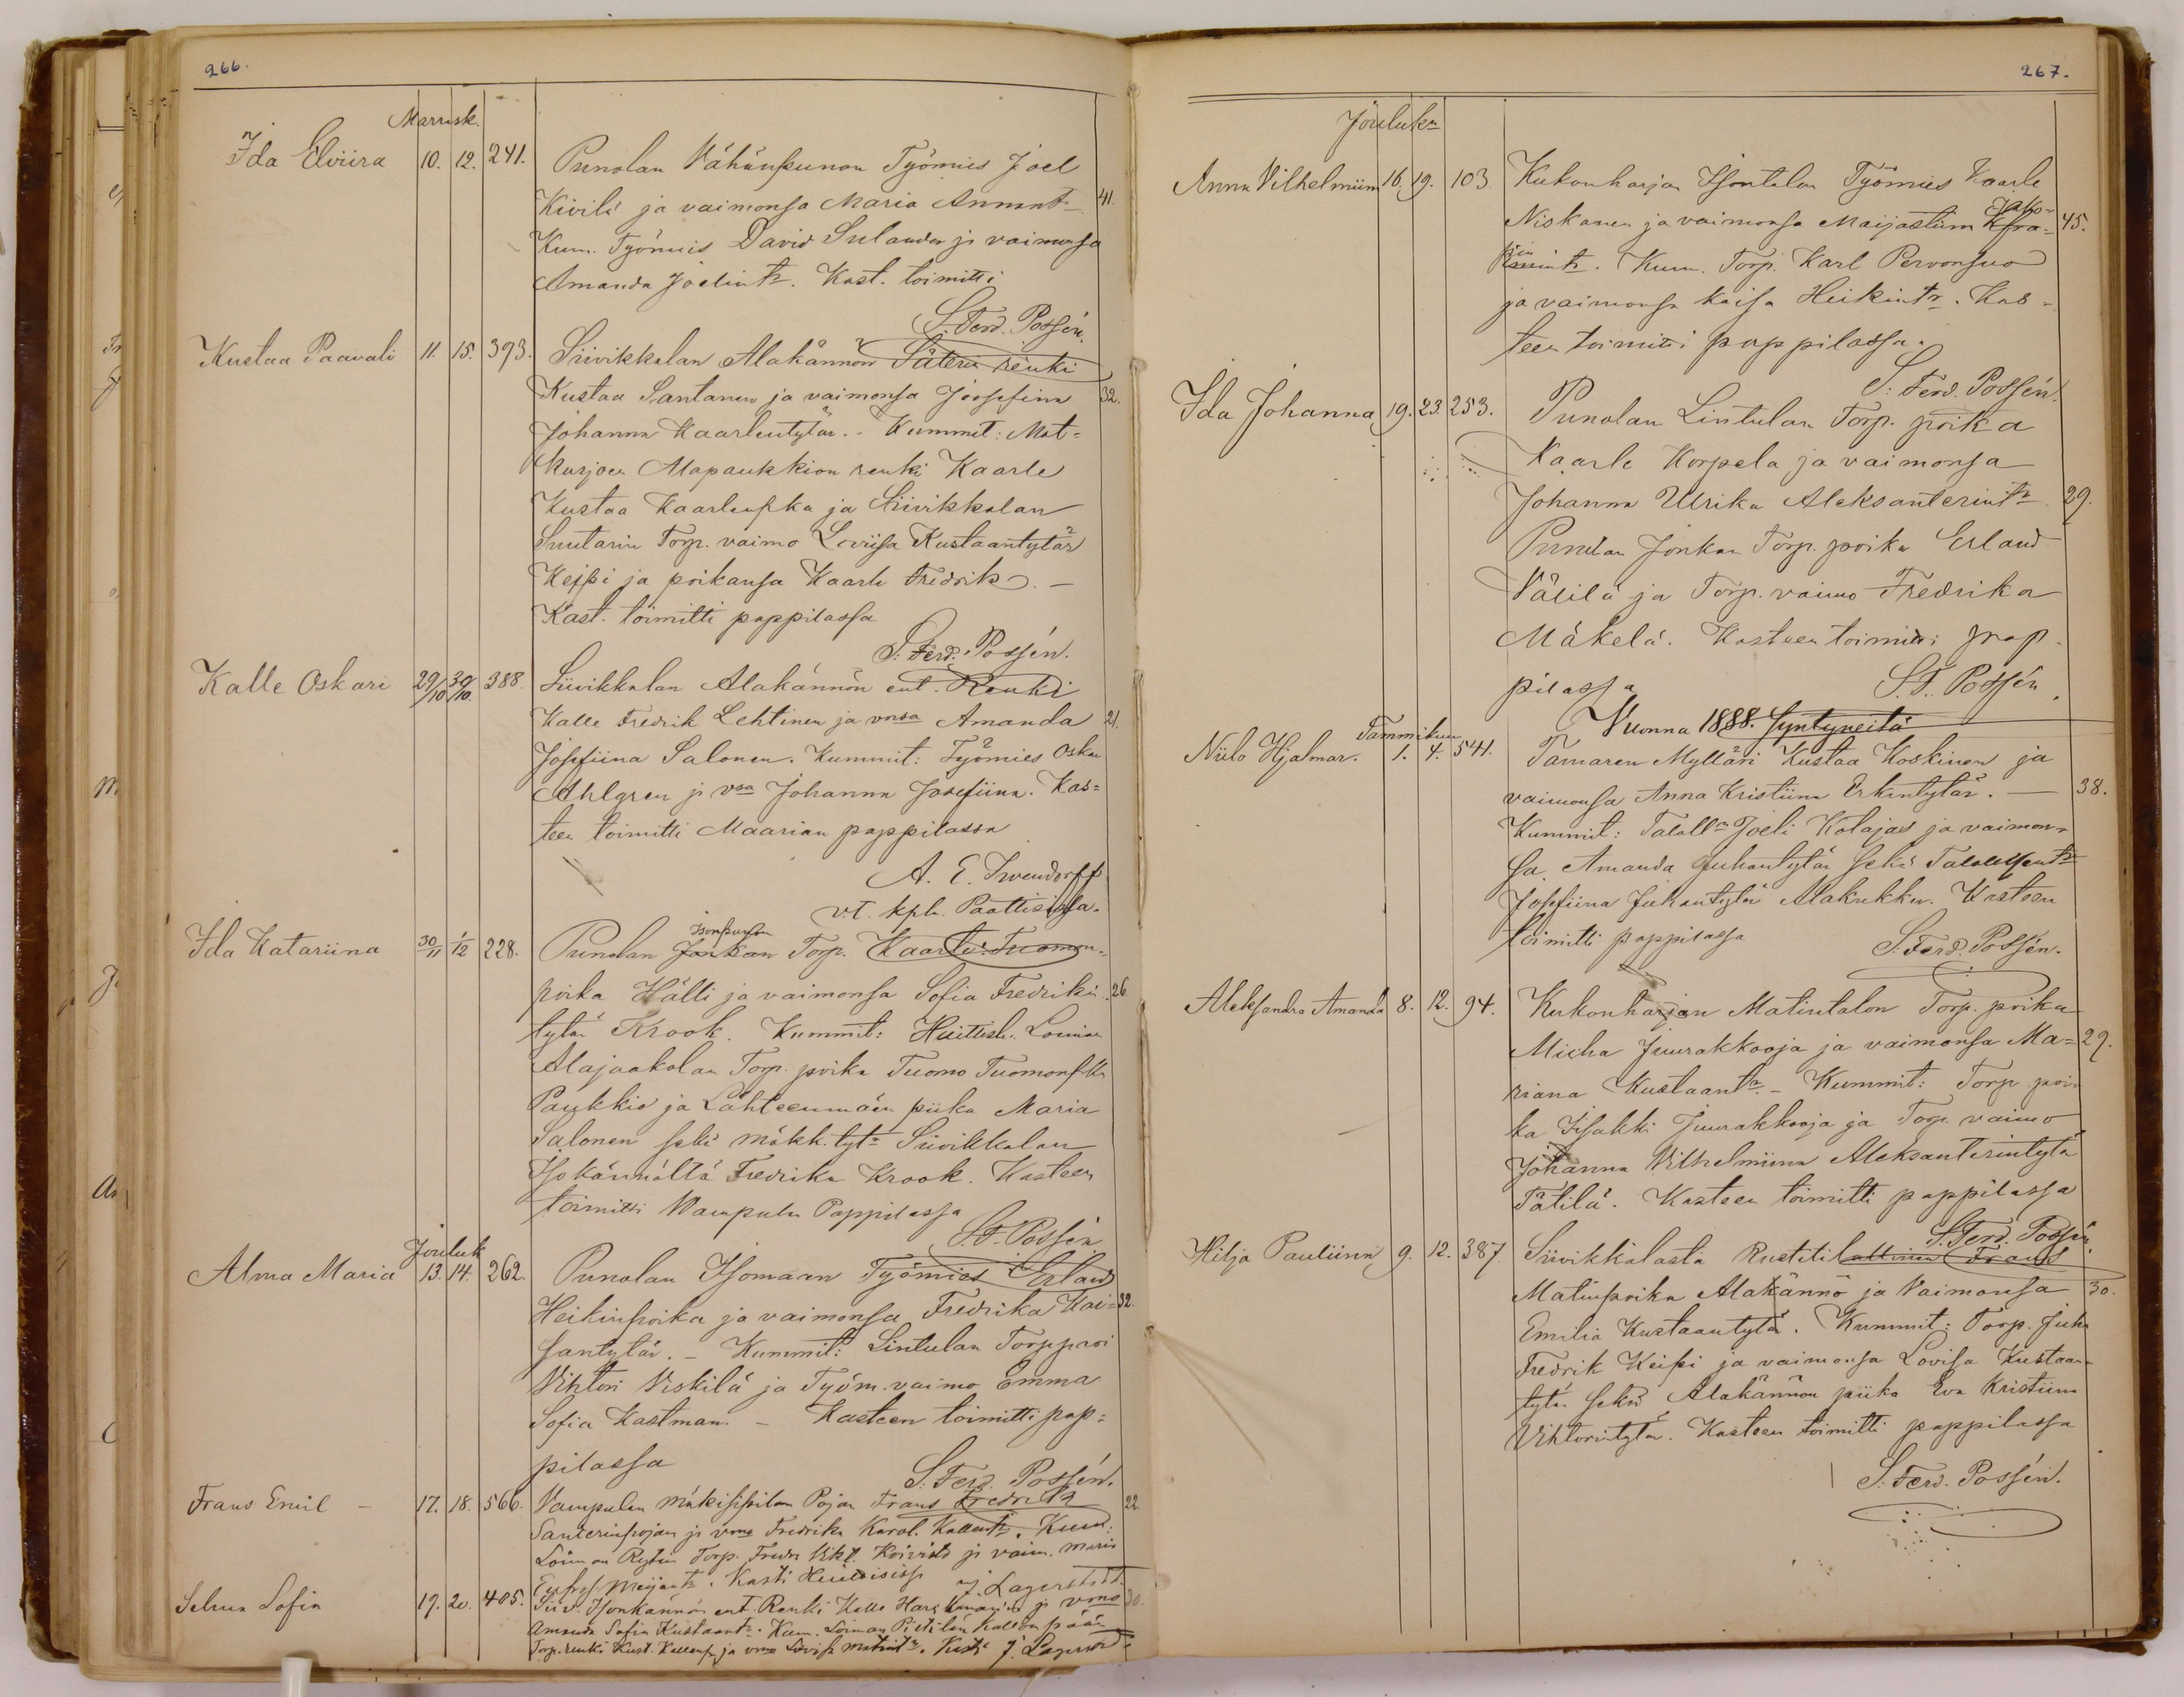 266.
Marrask.
Ida Elviira 10. 12. 241. Punolan Vähänpunon Työmies Joel
Kivilä ja vaimonsa Maria Annant. 41.
Kum. Työmies David Sulander ja vaimonsa
Amanda Joelintr. Kast. toimitti
S. Ferd. Possén.
Kustaa Paavali 11. 15. 393. Siivikkalan Alakännön Säterin renki
Kustaa Santanen ja vaimonsa Joosefina 32.
Johanna Kaarlentytär. - Kummit: Mat=
kusjoen Alapaukkion renki Kaarle
Kustaa Kaarlenpka ja Siivikkalan
Suutarin Torp. vaimo Loviisa Kustaantytär
Keippi ja poikansa Kaarle Fredrik. -
Kast. toimitti pappilassa
S. Ferd. Possén.
Kalle Oskari 29/10 30/10 388. Siivikkalan Alakännön ent. Renki
Kalle Fredrik Lehtinen ja vmsa Amanda 21.
Josefiina Salonen. Kummit: Työmies Oskar
Ahlgren ja vsa Johanna Josefiina. Kas=
teen toimitti Maarian pappilassa
A. E. Irvendorff
v.t. kpl. Paattisissa.
Ida Katariina 30/11 1/12 228. Punolan Jonkan Isonpunon Torp. Kaarle Tuomon=
poika Hälli ja vaimonsa Sofia Fredrikin 26.
tytär Krook. Kummit: Huittisk. Loiman
Alajaakolan Torp. poika Tuomo Tuomonpka
Paukkio ja Lähteenmäen piika Maria
Salonen sekä mäkk.tytr Siivikkalan
Isokännältä Fredrika Krook. Kasteen
toimitti Wampulan Pappilassa
S. F. Possén
Jouluk.
Alma Maria 13. 14. 262. Punolan Isomaan Työmies Erland
Heikinpoika ja vaimonsa Fredrika Kai= 32.
santytär. - Kummit: Lintulan Torp poi
Vihtori Viskilä ja Työm. vaimo Emma
Sofia Kastman. - Kasteen toimitti pap=
pilassa
S. Ferd. Possén.
Frans Emil - 17. 18. 566. Vampulan mäkisspilan Pojan Frans Fredrikin 22
Santerinpojan ja vmo Fredrika Karol. Kallentr. Kum:
Loiman Rytin Torp. Fredr Vikt. Koivisto ja vaim. Maria
Eufros. Meijantr. Kasti Huittisissa J. Lagerstedt.
Selma Sofia 19. 20. 405. Siiv. Isonkännön ent. Renki Kalle ja vmo 30.
Amanda Sofia Kustaantr. Kum. Loiman Pietilän Kallon pään
Torp. renki Kust. Kallenp. ja vmo Lovisa Matintr. Kasti J. Lagerstedt
267.
Jouluk.
Anna Vilhelmiina 16. 19. 103. Kukonharjan Isontalon Työmies Kaarle
Niskanen ja vaimonsa Maijastiina Jako= 45.
pintr. Kum. Torp. Karl Pervonsuo
ja vaimonsa Kaisa Heikintr. Kas=
teen toimitti pappilassa.
S. Ferd. Possén.
Ida Johanna 19. 23. 253. Punolan Lintulan Torp. poika
Kaarle Korpela ja vaimonsa
Johanna Ulrika Aleksanterintr 29.
Punolan Jonkan Torp. poika Erland
Välilä ja Torp. vaimo Fredrika
Mäkelä. Kasteen toimitti pap-
pilassa S. F. Possén.
Vuonna 1888. Syntyneitä
Tammikuu
Niilo Hjalmar. 1. 4. 541. Tamaren Mylläri Kustaa Koskinen ja
vaimonsa Anna Kristiina Erkintytär. - 38.
Kummit: Talolln Joeli Kolajas ja vaimon=
sa Amanda Juhantytär sekä Talollisentr
Josefiina Juhantytär Alakukku. Kasteen
toimitti pappilassa S. Ferd. Possén.
Aleksandra Amanda 8. 12. 94. Kukonharjan Matintalon Torp. poika
Micha Juurakkooja ja vaimonsa Ma= 29.
riana Kustaantr. - Kummit: Torp poi-
ka Iisakki Juurakkooja ja Torp. vaimo
Johanna Vilhelmiina Aleksanterintytä
Tätilä. Kasteen toimitti pappilassa
S. Ferd. Possén.
Hilja Pauliina 9. 12. 387. Siivikkalasta Rustitilallinen Frans
Matinpoika Alakännö ja Vaimonsa 30.
Emilia Kustaantytä. Kummit: Torp. Juha
Fredrik Keipi ja vaimonsa Lovisa Kustaan-
tytä sekä Alakännön piika Eva Kristiina
Vihtorintytä. Kasteen toimitti pappilassa
S. Ferd. Possén.